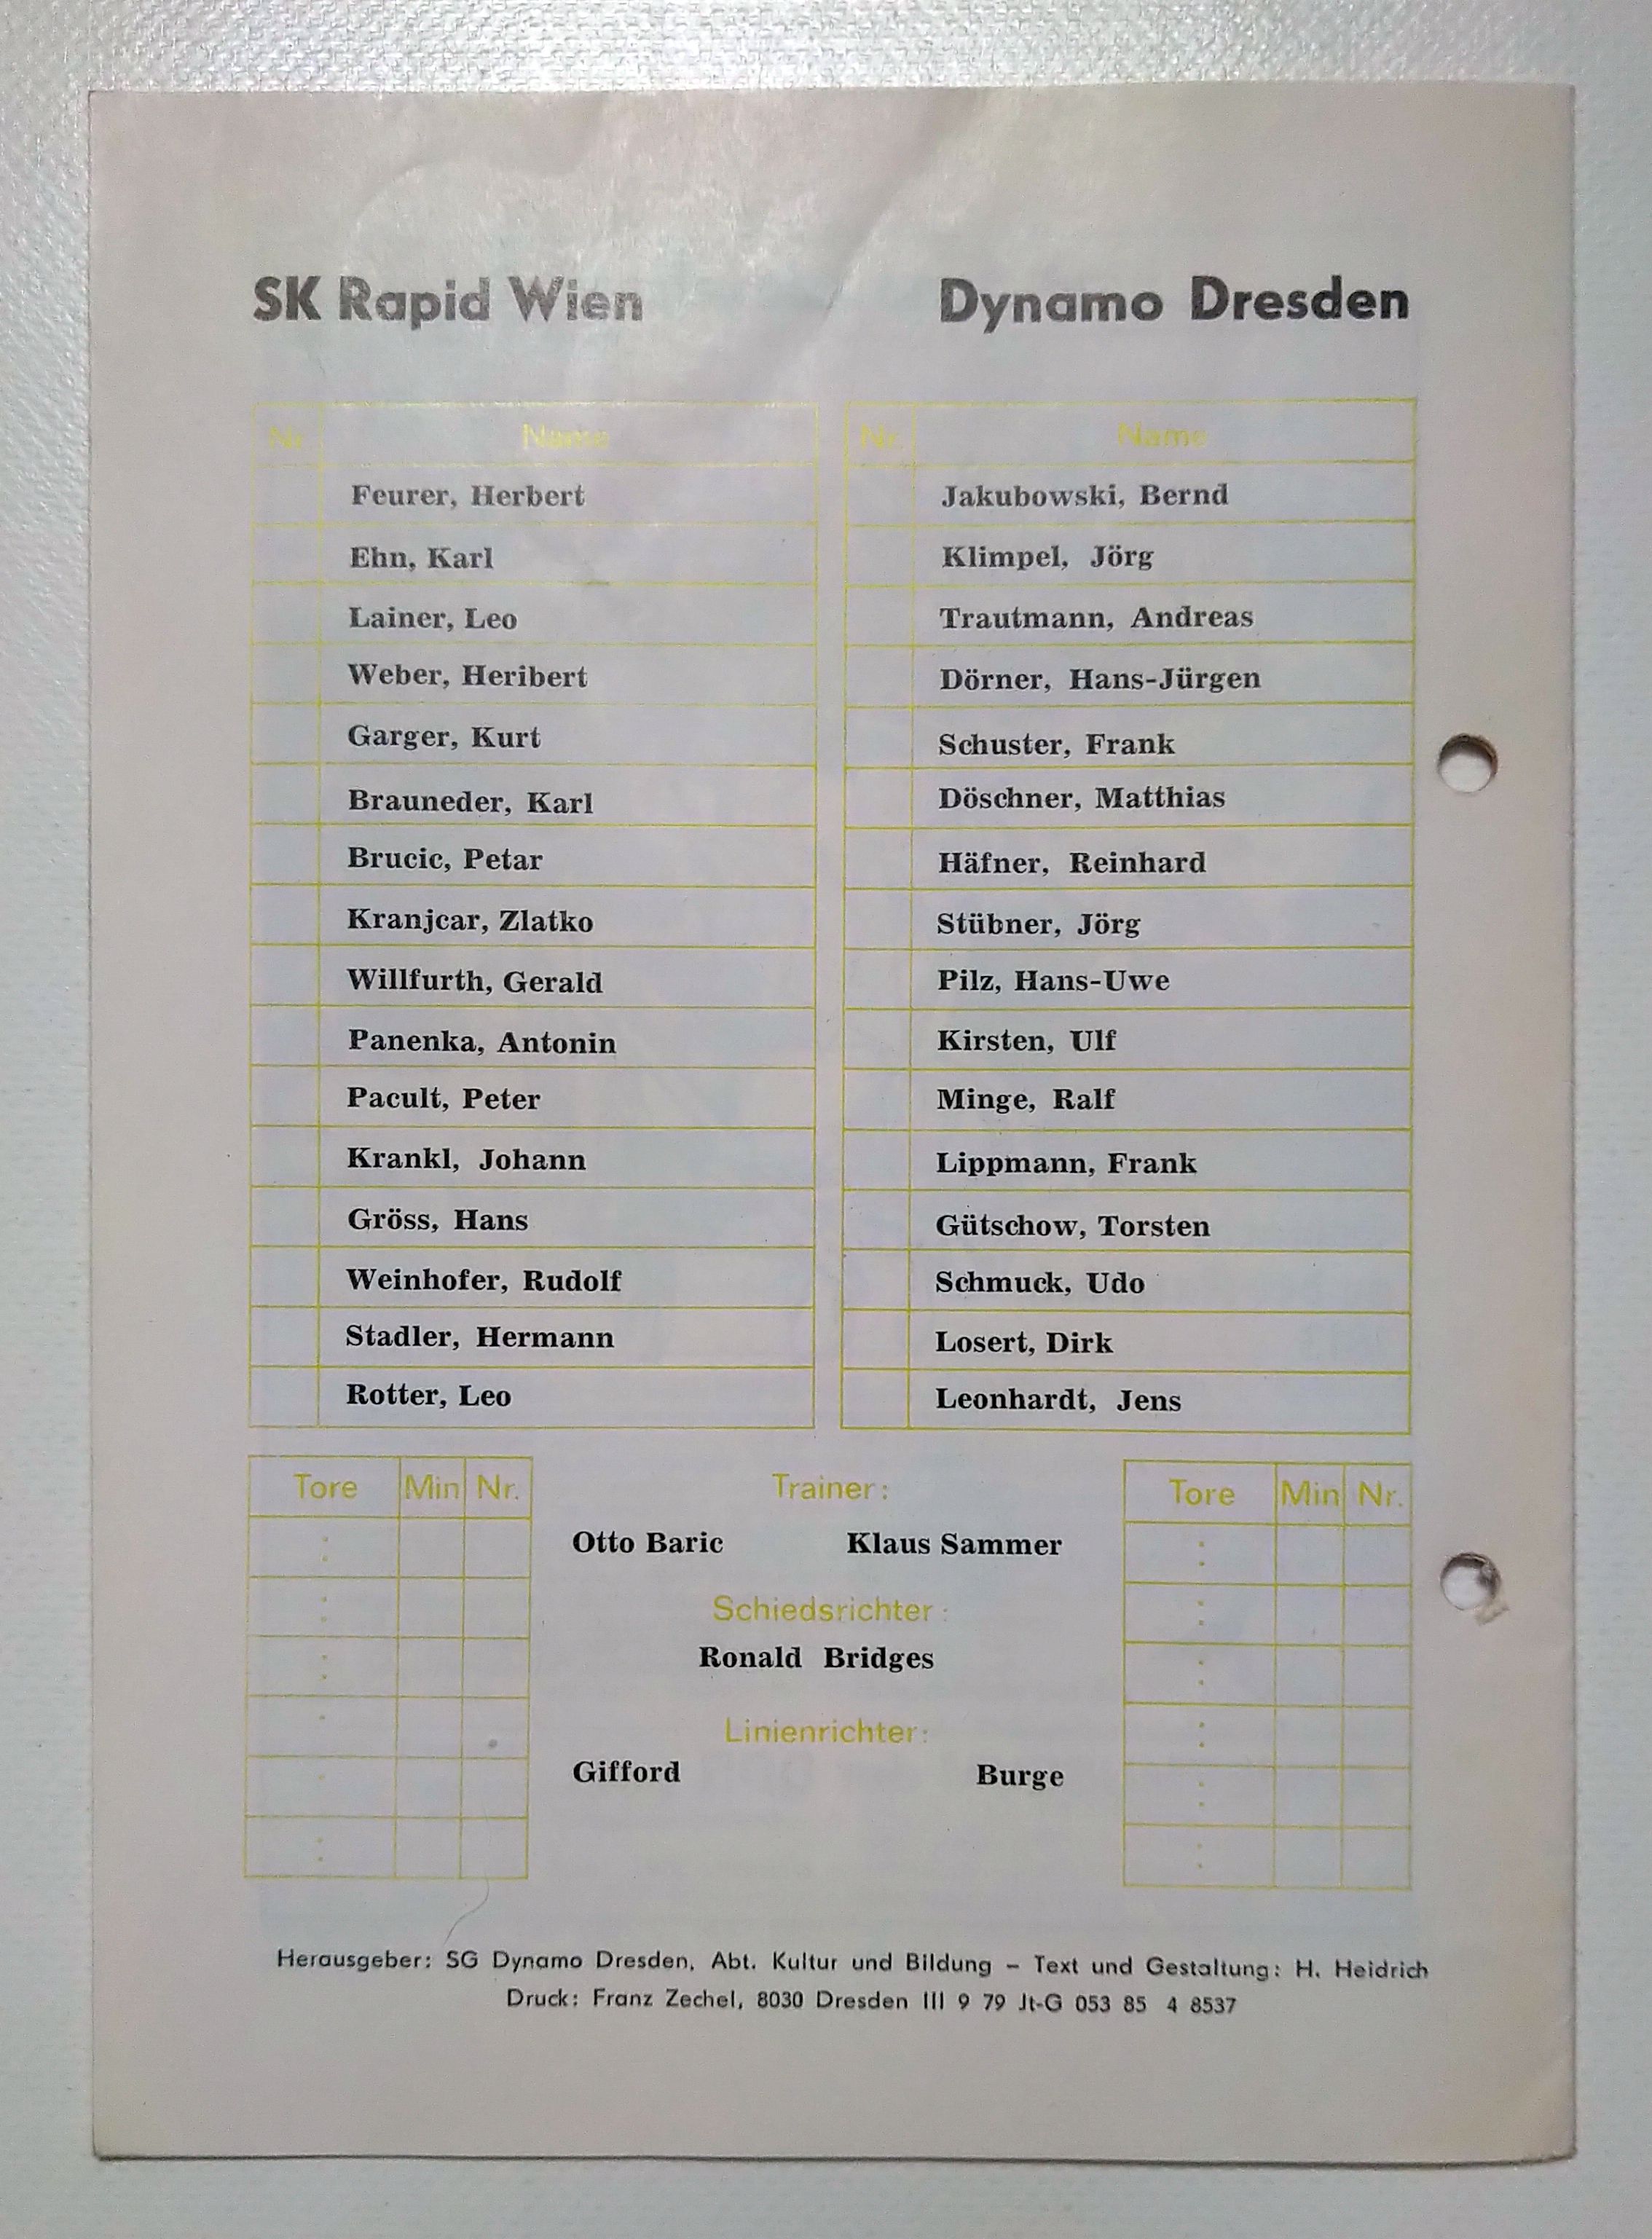 SK Rapid Wien
Dynamo Dresden
Nr. Name
Feurer, Herbert
Ehn, Karl
Lainer, Leo
Weber, Heribert
Garger, Kurt
Brauneder, Karl
Brucic, Petar
Kranjcar, Zlatko
Willfurth, Gerald
Panenka, Antonin
Pacult, Peter
Krankl, Johann
Gröss, Hans
Weinhofer, Rudolf
Stadler, Hermann
Rotter, Leo
Nr. Name
Jakubowski, Bernd
Klimpel, Jörg
Trautmann, Andreas
Dörner, Hans-Jürgen
Schuster, Frank
Döschner, Matthias
Häfner, Reinhard
Stübner, Jörg
Pilz, Hans-Uwe
Kirsten, Ulf
Minge, Ralf
Lippmann, Frank
Gütschow, Torsten
Schmuck, Udo
Losert, Dirk
Leonhardt, Jens
Tore Min Nr.
Trainer:
Otto Baric Klaus Sammer
Schiedsrichter:
Ronald Bridges
Linienrichter:
Gifford Burge
Tore Min Nr.
Herausgeber: SG Dynamo Dresden, Abt. Kultur und Bildung – Text und Gestaltung: H. Heidrich
Druck: Franz Zechel, 8030 Dresden III 9 79 Jt-G 053 85 4 8537